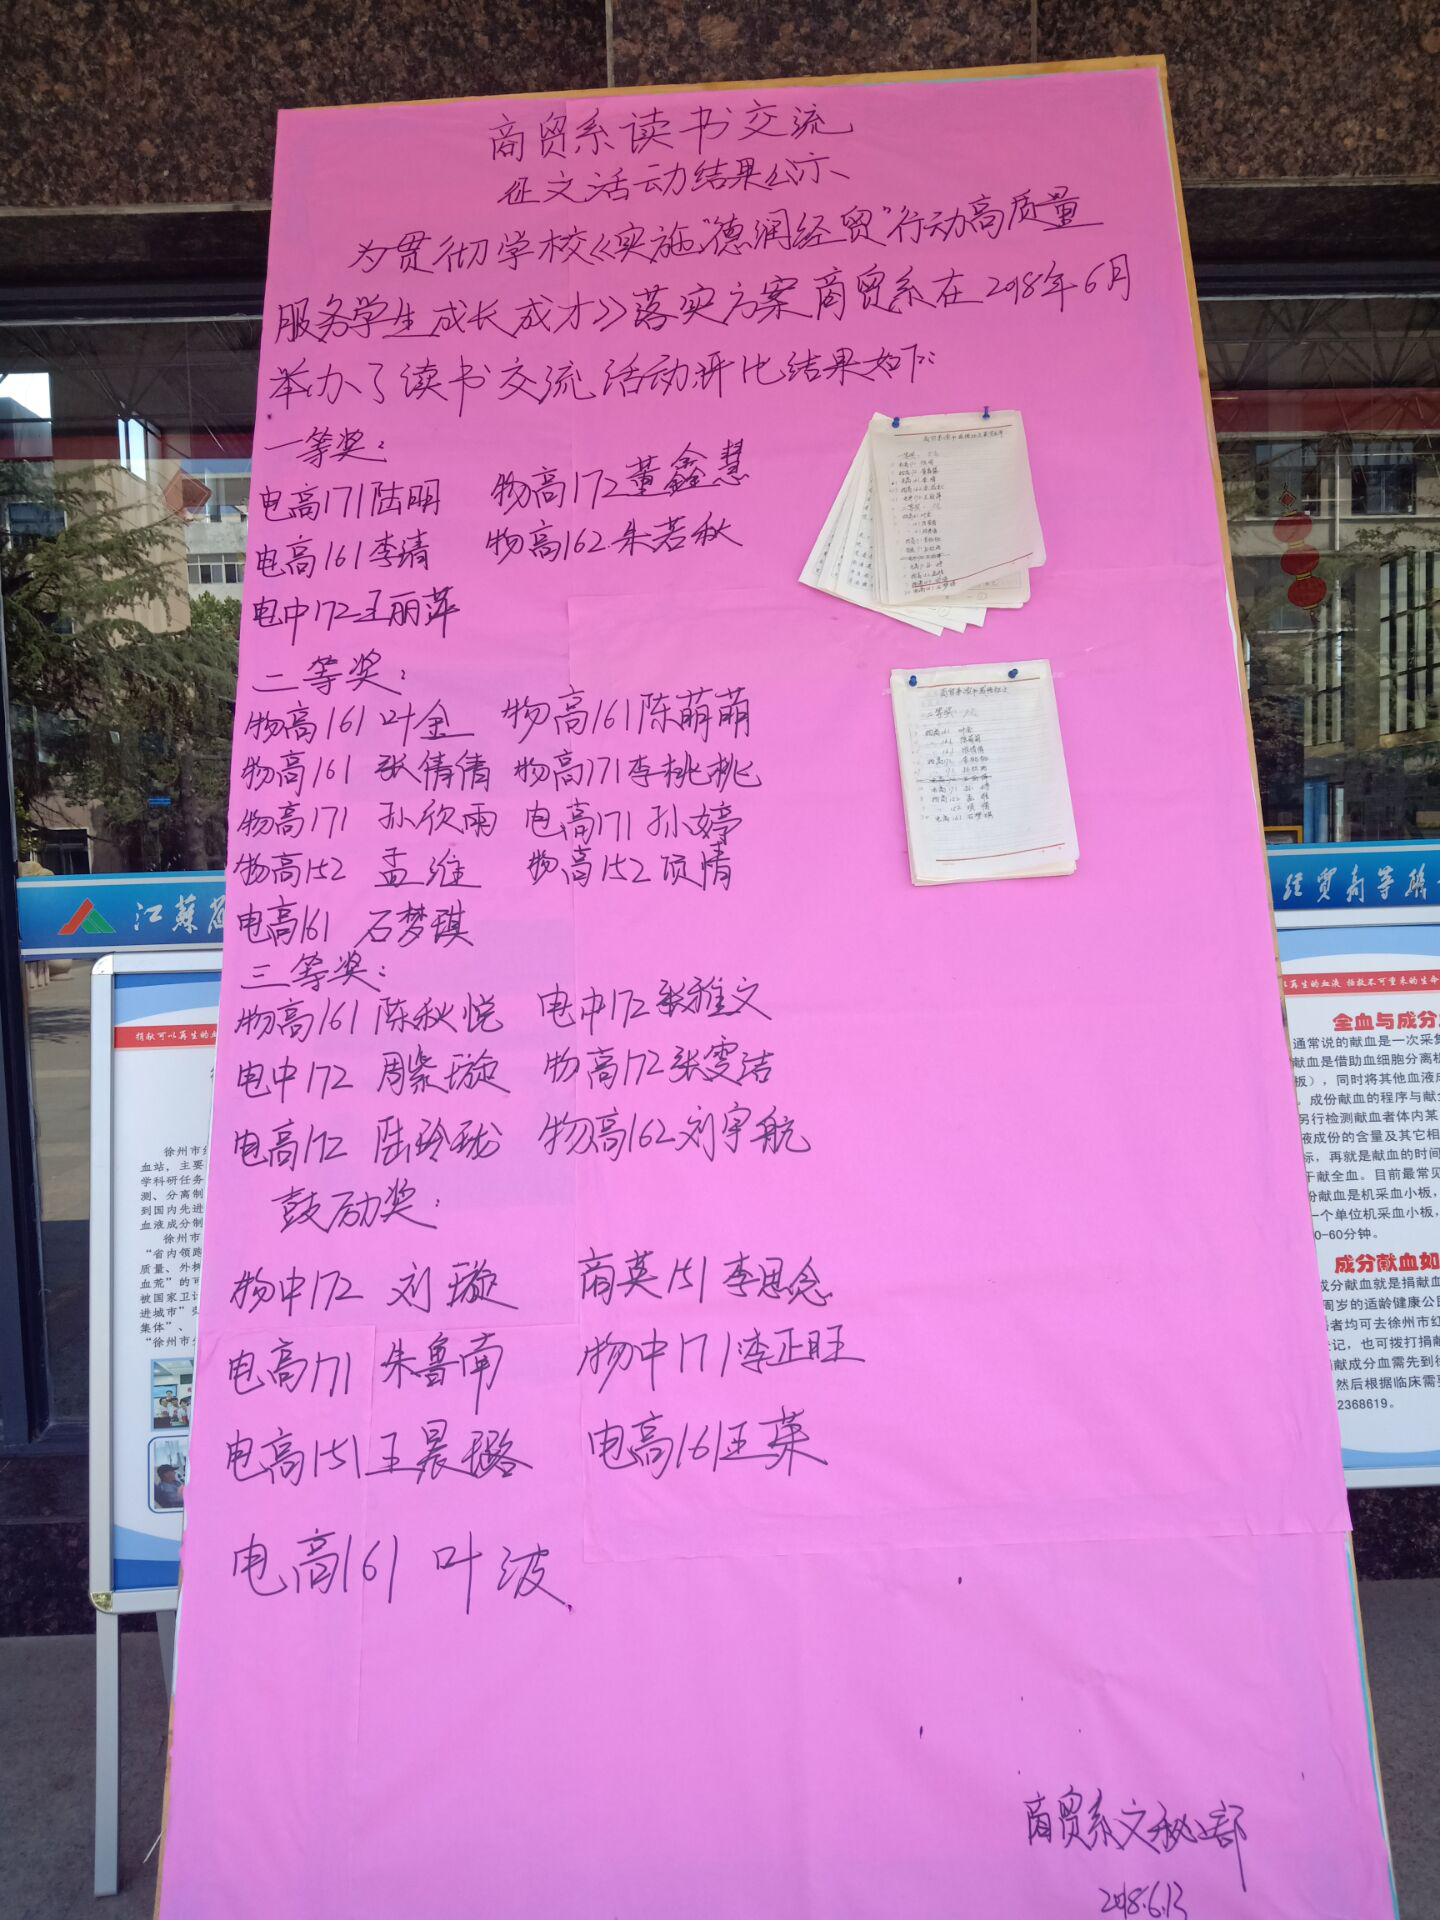 商贸系读书交流
征文活动结果公示
为贯彻学校《实施"德润经贸"行动高质量
服务学生成长成才》落实方案商贸系在2018年6月
举办了读书交流活动评比结果如下:
一等奖:
电高171陆明 物高172董鑫慧
电高161李清 物高162朱若秋
电中172王丽萍
二等奖:
物高161叶金 物高161陈萌萌
物高161 张倩倩 物高171李桃桃
物高171 孙欣雨 电高171孙婷
物高152 孟维 物高152项情
电高161 石梦琪
三等奖:
物高161陈秋悦 电中172张雅文
电中172 周紫璇 物高172张雯洁
电高172 陆玲珑 物高162刘宇航
鼓励奖:
物中172 刘璇 商英151李思念
电高171 朱鲁南 物中171李正旺
电高151王晨璐 电高161王荣
电高161 叶波
商贸系文秘部
2018.6.13
江蘇
经贸高等职
捐献可以再生的血
徐州市
血站,主要
学科研任务
测、分离制
到国内先进
血液成分制
徐州市
"省内领跑
质量、外树
血荒"的可
被国家卫计
进城市"
集体"、
"徐州市
再生的血液 拯救不可重来的生命
全血与成分
通常说的献血是一次采集
献血是借助血细胞分离机
板),同时将其他血液成
。成份献血的程序与献全
另行检测献血者体内某
液成份的含量及其它相
标,再就是献血的时间
于献全血。目前最常见
份献血是机采血小板,
一个单位机采血小板,
0-60分钟。
成分献血如
成分献血就是捐献血
周岁的适龄健康公民
者均可去徐州市红
登记,也可拨打捐献
捐献成分血需先到徐
然后根据临床需要
2368619。